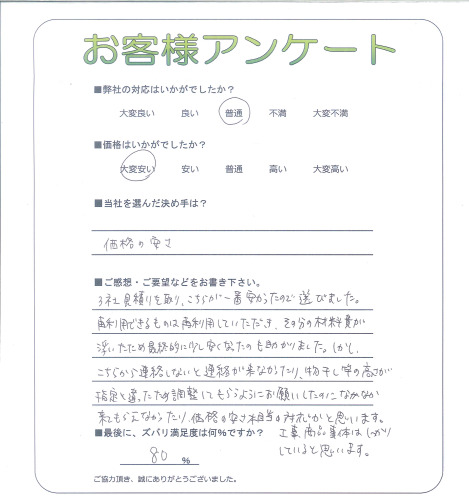 お客様アンケート
■弊社の対応はいかがでしたか?
大変良い 良い 普通 不満 大変不満
■価格はいかがでしたか?
大変安い 安い 普通 高い 大変高い
■当社を選んだ決め手は?
価格の安さ
■ご感想・ご要望などをお書き下さい。
3社見積りを取り、こちらが一番安かったので選びました。
再利用できるものは再利用していただき、その分の材料費が
浮いたため最終的に少し安くなったのも助かりました。しかし、
こちらから連絡しないと連絡が来なかったり、物干し竿の高さが
指定と違ったため調整してもらうようにお願いしたのになかなか
来てもらえなかったり、価格の安さ相当の対応かと思います。
■最後に、ズバリ満足度は何%ですか?
工事、商品自体はしっかり
していると思います。
80 %
ご協力頂き、誠にありがとうございました。